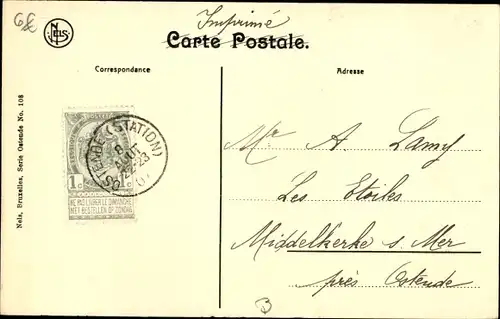 Imprimé
Carte Postale.
NELS
Correspondance
Adresse
Nels, Bruxelles, Serie Ostende No. 108
OSTENDE (STATION)
8
AOUT
22-23
07
1c 1c
NE PAS LIVRER LE DIMANCHE
NIET BESTELLEN OP ZONDAG
Mr A. Lamy
Les Etoiles
Middelkerke s. Mer
près Ostende